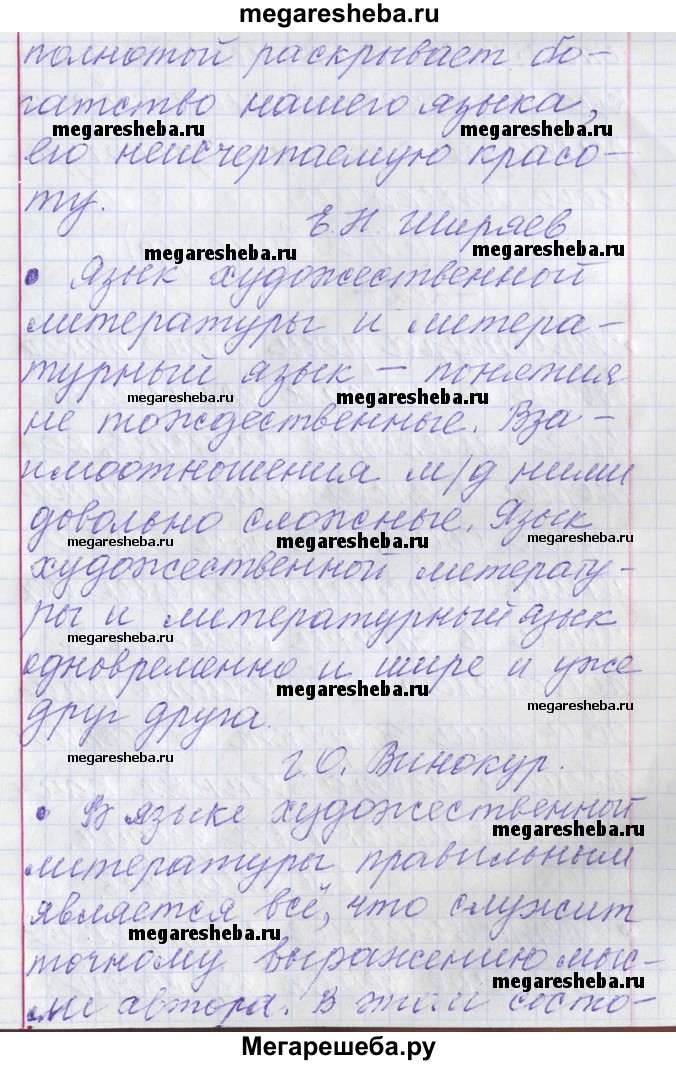 megaresheba.ru
полнотой раскрывает бо-
гатство нашего языка,
megaresheba.ru megaresheba.ru
его неисчерпаемую красо-
ту.
Е.Н. Ширяев
megaresheba.ru megaresheba.ru
• Язык художественной
литературы и литера-
турный язык – понятия
megaresheba.ru megaresheba.ru
не тождественные. Вза-
имоотношения м/д ними
довольно сложные. Язык
megaresheba.ru megaresheba.ru megaresheba.ru
художественной литерату-
ры и литературный язык
megaresheba.ru
одновременно и шире и уже
megaresheba.ru
друг друга.
megaresheba.ru
megaresheba.ru
Г.О. Винокур.
• В языке художественной
megaresheba.ru
литературы правильным
является всё, что служит
megaresheba.ru
точному выражению мыс-
megaresheba.ru
ли автора. В этом состо-
Мегарешеба.ру